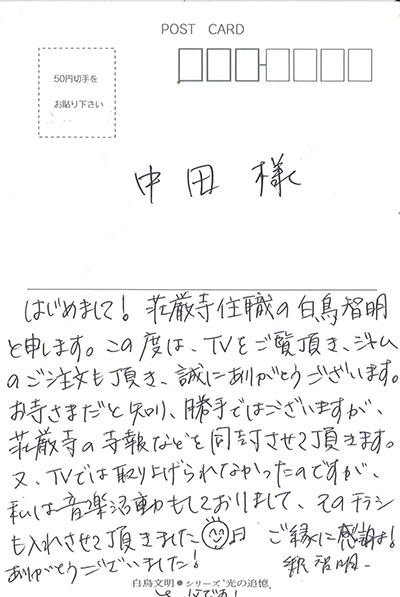 POST CARD
50円切手を
お貼り下さい
中田 様
はじめまして! 荘厳寺住職の白鳥智明
と申します。この度は、TVをご覧頂き、ジャム
のご注文も頂き、誠にありがとうございます。
お寺さまだと知り、勝手ではございますが、
荘厳寺の寺報などを同封させて頂きます。
又、TVでは取り上げられなかったのですが、
私は音楽活動もしておりまして、そのチラシ
も入れさせて頂きました
ご縁に感謝!
ありがとうございました!
釈智明
白鳥文明●シリーズ“光の追憶”